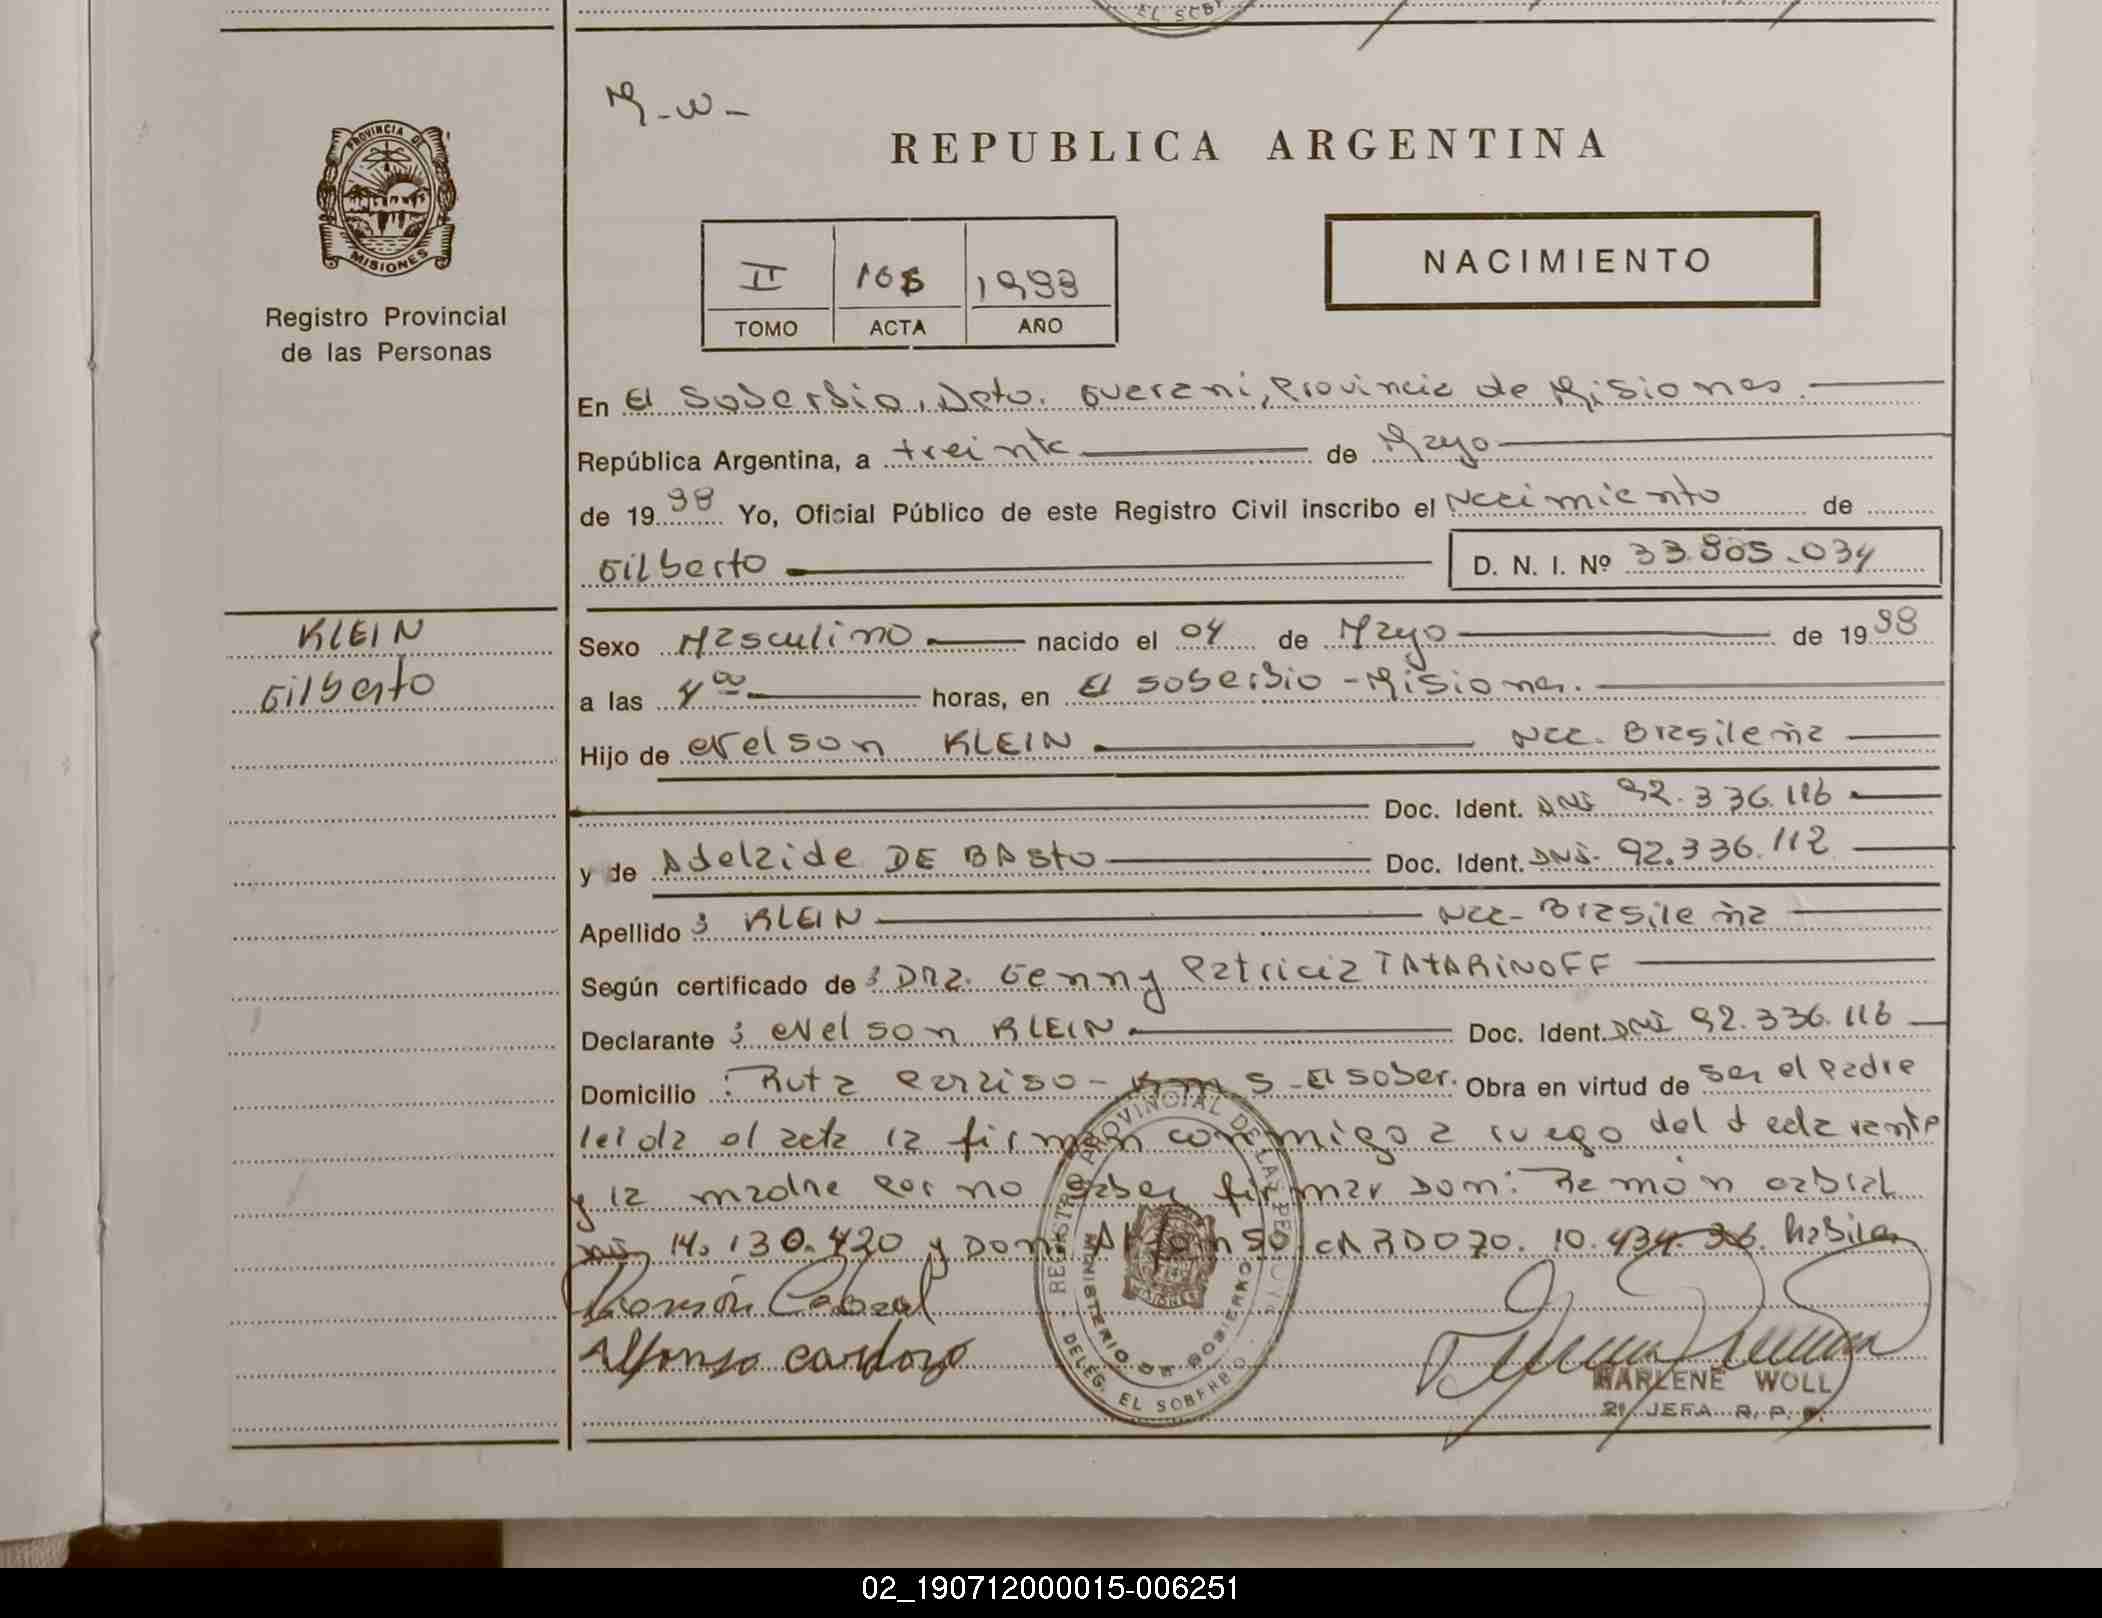 EL SOBE
M-W-
REPUBLICA ARGENTINA
PROVINCIA DE
MISIONES
Registro Provincial
de las Personas
II 1993
TOMO ACTA AÑO
NACIMIENTO
En El Soberbio, Dpto. Guarani, Provincia de Misiones.
República Argentina, a treinta de Mayo
de 1998 Yo, Oficial Público de este Registro Civil inscribo el Nacimiento de
Gilberto D. N. I. Nº 33.905.034
KLEIN
Gilberto
Sexo Masculino nacido el 04 de Mayo de 1998
a las 4 00 horas, en El Soberbio - Misiones.
Hijo de Nelson KLEIN Nac. Brasileña
Doc. Ident. DNI 92.336.116
y de Adelaide DE BASTO Doc. Ident. DNI. 92.336.112
Apellido : KLEIN Nac- Brasileña
Según certificado de : Dra. Genny Patricia TATARINOFF
Declarante : Nelson KLEIN Doc. Ident. DNI 92.336.116
Domicilio : Ruta Paraiso - Km 5 - El Sober. Obra en virtud de ser el Padre
leida el acta la firman conmigo a ruego del declarante
y la madre por no saber firmar Don: Ramón Cabral
DNI 14.130.420 y Don: Alfonso CARDOZO. 10.434.36. habila
Ramón Cabral
Alfonso Cardozo
REGISTRO PROVINCIAL DE LAS PERSONAS
MINISTERIO DE GOBIERNO
DELEG. EL SOBERBIO
MARLENE WOLL
JEFA R. P. P.
02_190712000015-006251